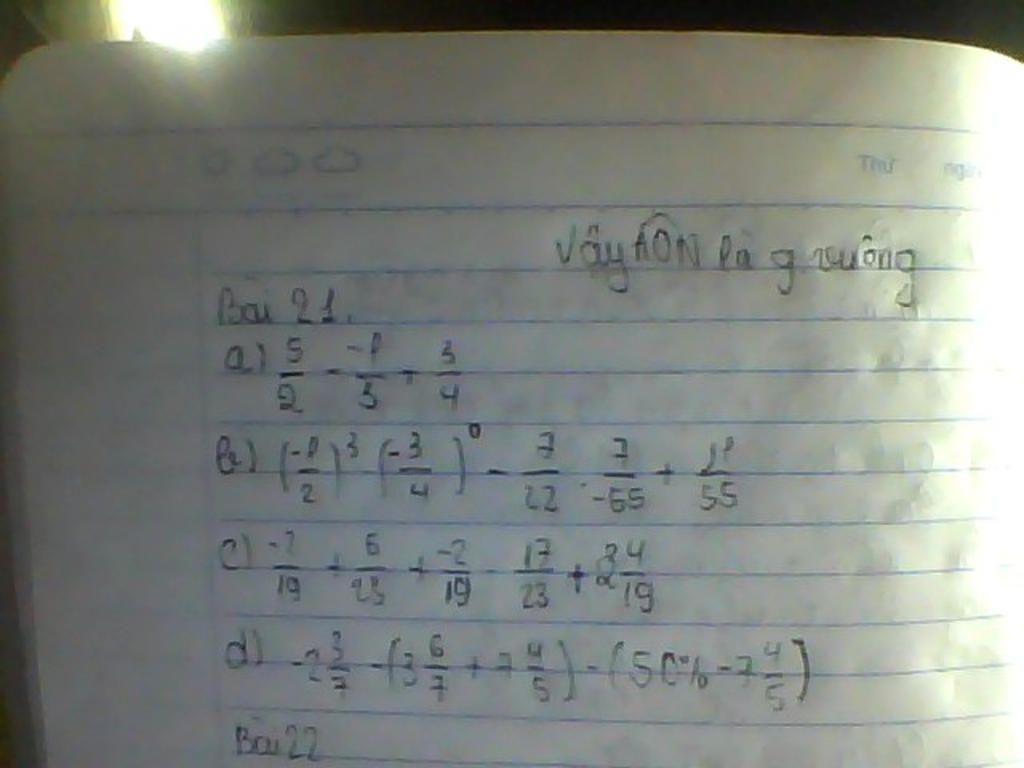 Thứ ngày
Vậy AÔN là g vuông
Bài 21.
a) 5/2 - -1/3 + 3/4
b) (-1/2)^3 (-3/4)^0 - 7/22 . 7/-55 +
c) /19 + 6/23 + -2/19 - 17/23 + 4/19
d) -2 3/7 - (3 6/7 + 7 4/5) - (50% - 7 4/5)
Bài 22